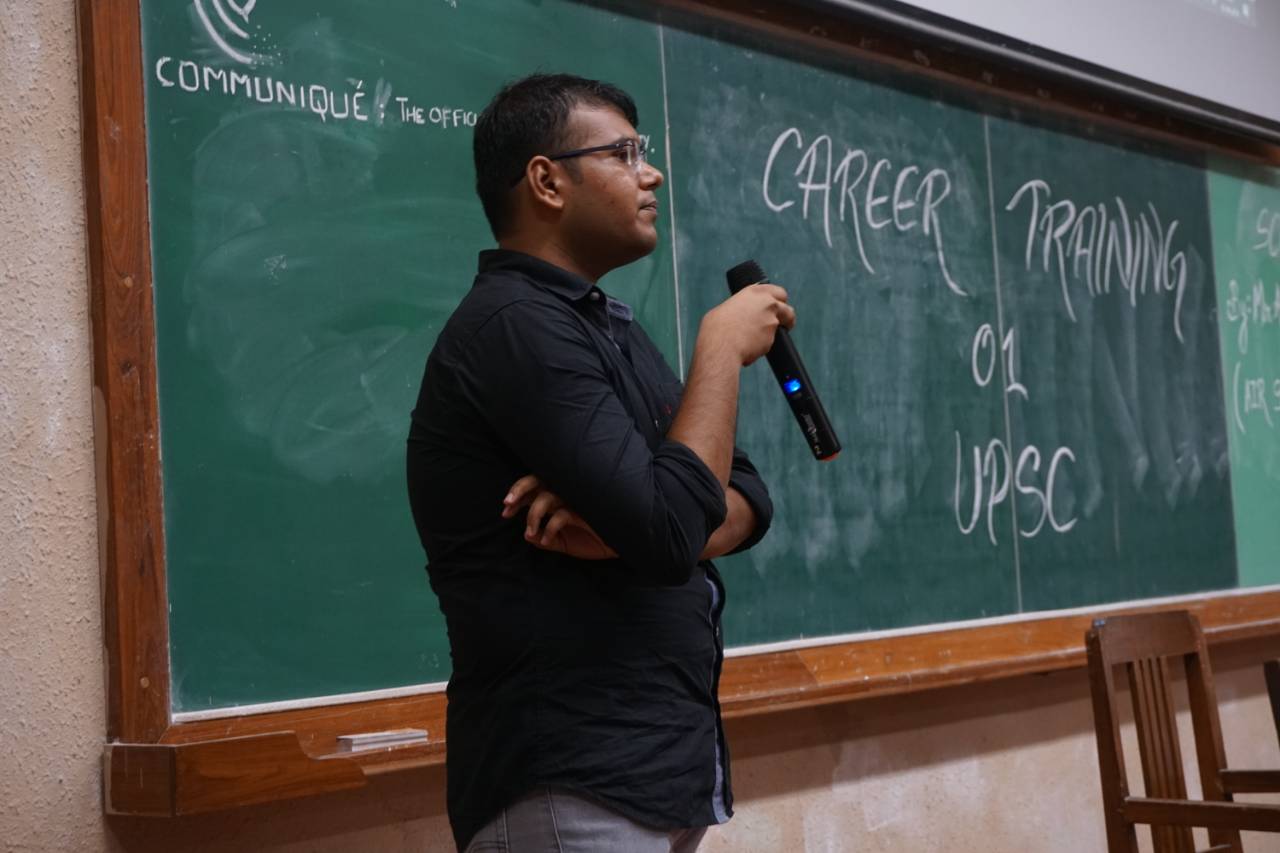 COMMUNIQUÉ : THE OFFIC
CAREER TRAINING
01
UPSC
By:- Mr.
(AIR